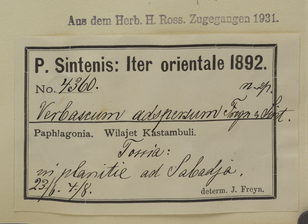 Aus dem Herb. H. Ross. Zugegangen 1931.
P. Sintenis: Iter orientale 1892.
No. 4360. n. sp.
Verbascum adspersum Freyn & Sint.
Paphlagonia. Wilajet Kastambuli.
Tossia:
in planitie ad Sabadja.
23/6. 4/8.
determ. J. Freyn.